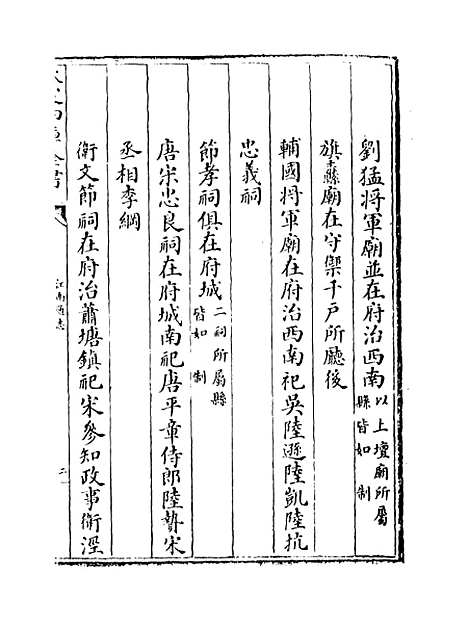 劉猛將軍廟並在府治西南以上壇廟所屬縣皆如制
旗纛廟在守禦千戶所廳後
輔國將軍廟在府治西南祀吳陸遜陸凱陸抗
忠義祠
節孝祠俱在府城二祠所屬縣皆如制
唐宋忠良祠在府城南祀唐平章侍郎陸贄宋
丞相李綱
衛文節祠在府治蕭塘鎮祀宋參知政事衛涇
江南通志